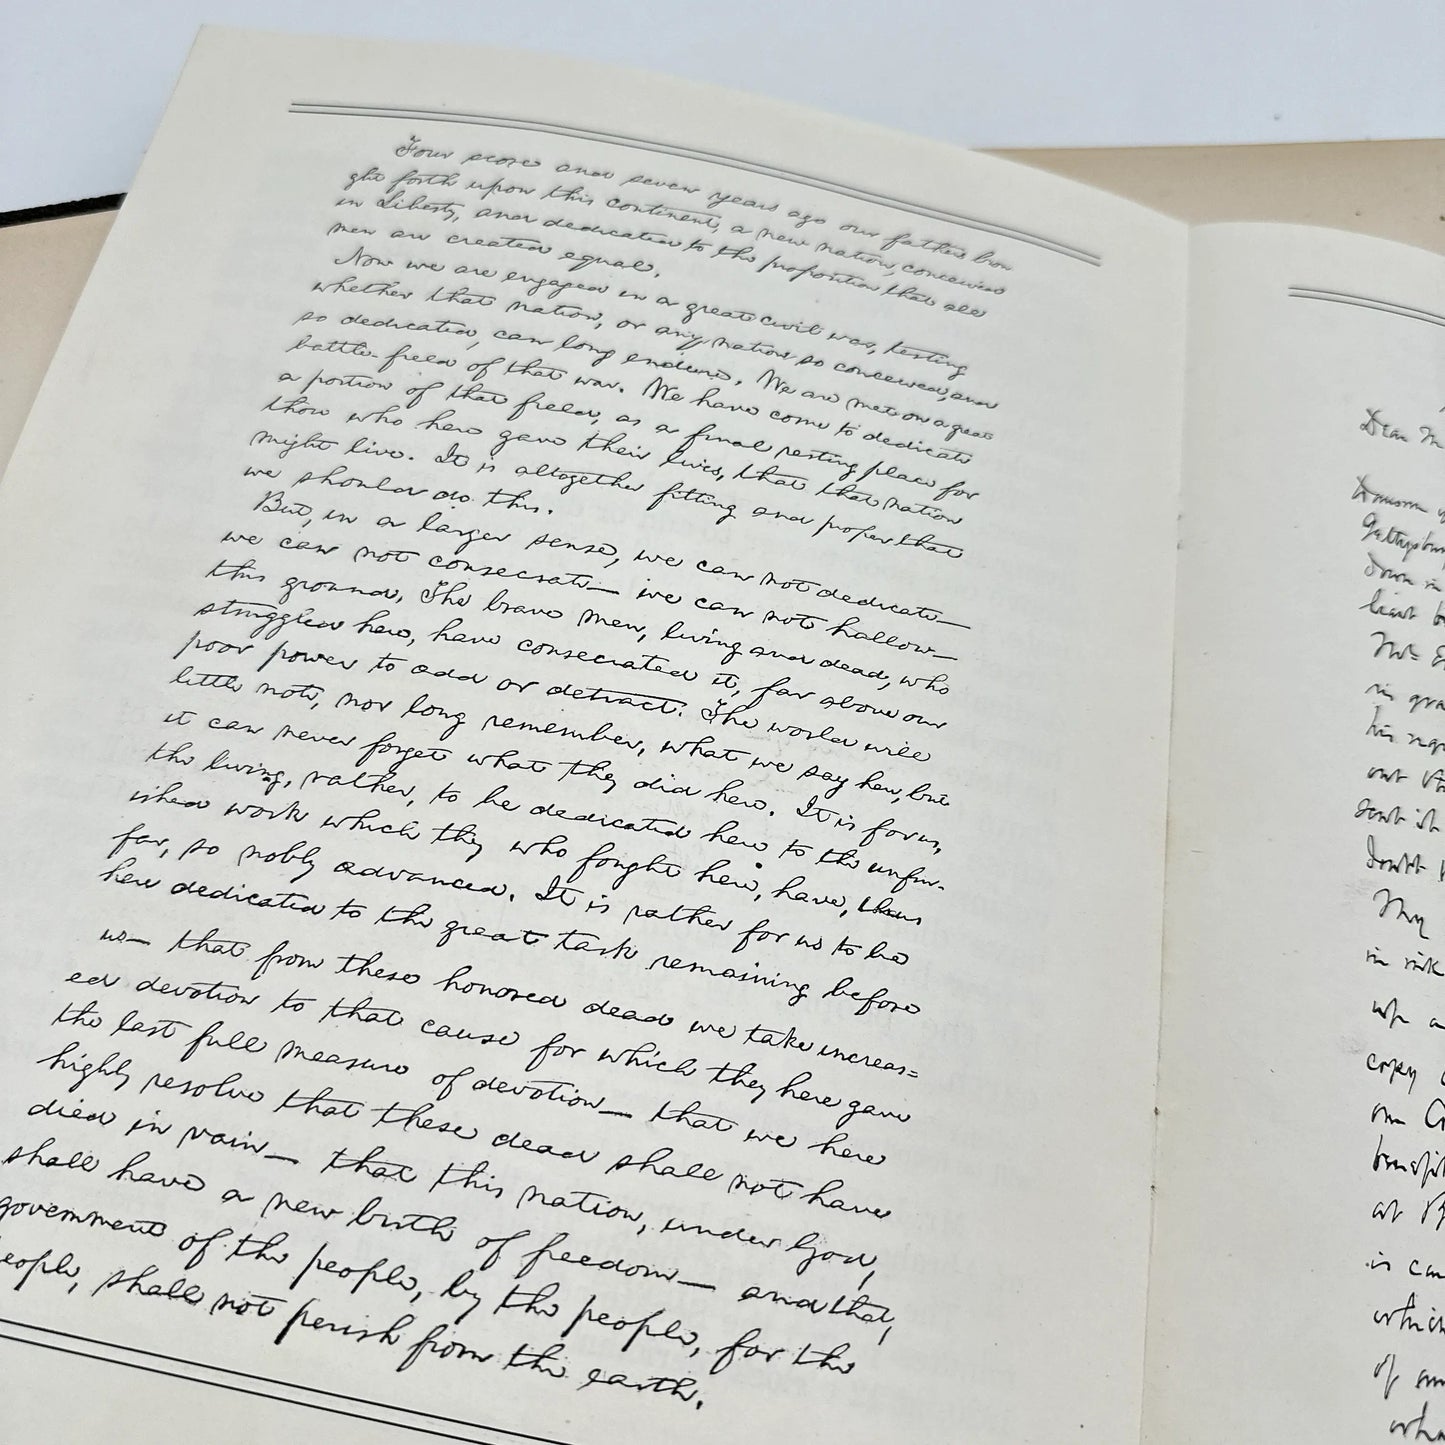 Four score and seven years ago our fathers brou
ght forth upon this continent, a new nation, conceived
in Liberty, and dedicated to the proposition that all
men are created equal.
Now we are engaged in a great civil war, testing
whether that nation, or any nation so conceived, and
so dedicated, can long endure. We are met on a great
battle-field of that war. We have come to dedicate
a portion of that field, as a final resting place for
those who here gave their lives, that that nation
might live. It is altogether fitting and proper that
we should do this.
But, in a larger sense, we can not dedicate—
we can not consecrate— we can not hallow—
this ground. The brave men, living and dead, who
struggled here, have consecrated it, far above our
poor power to add or detract. The world will
little note, nor long remember, what we say here, but
it can never forget what they did here. It is for us,
the living, rather, to be dedicated here to the unfin-
ished work which they who fought here, have, thus
far, so nobly advanced. It is rather for us to be
here dedicated to the great task remaining before
us— that from these honored dead we take increas=
ed devotion to that cause for which they here gave
the last full measure of devotion— that we here
highly resolve that these dead shall not have
died in vain— that this nation, under God,
shall have a new birth of freedom— and that,
government of the people, by the people, for the
people, shall not perish from the earth.
Dear M
Gettysbur
down in
least b
in gra
his requ
out th
sent it
doubt
My
in ink
up a
copy
on
benefit
at
is
which
of
what